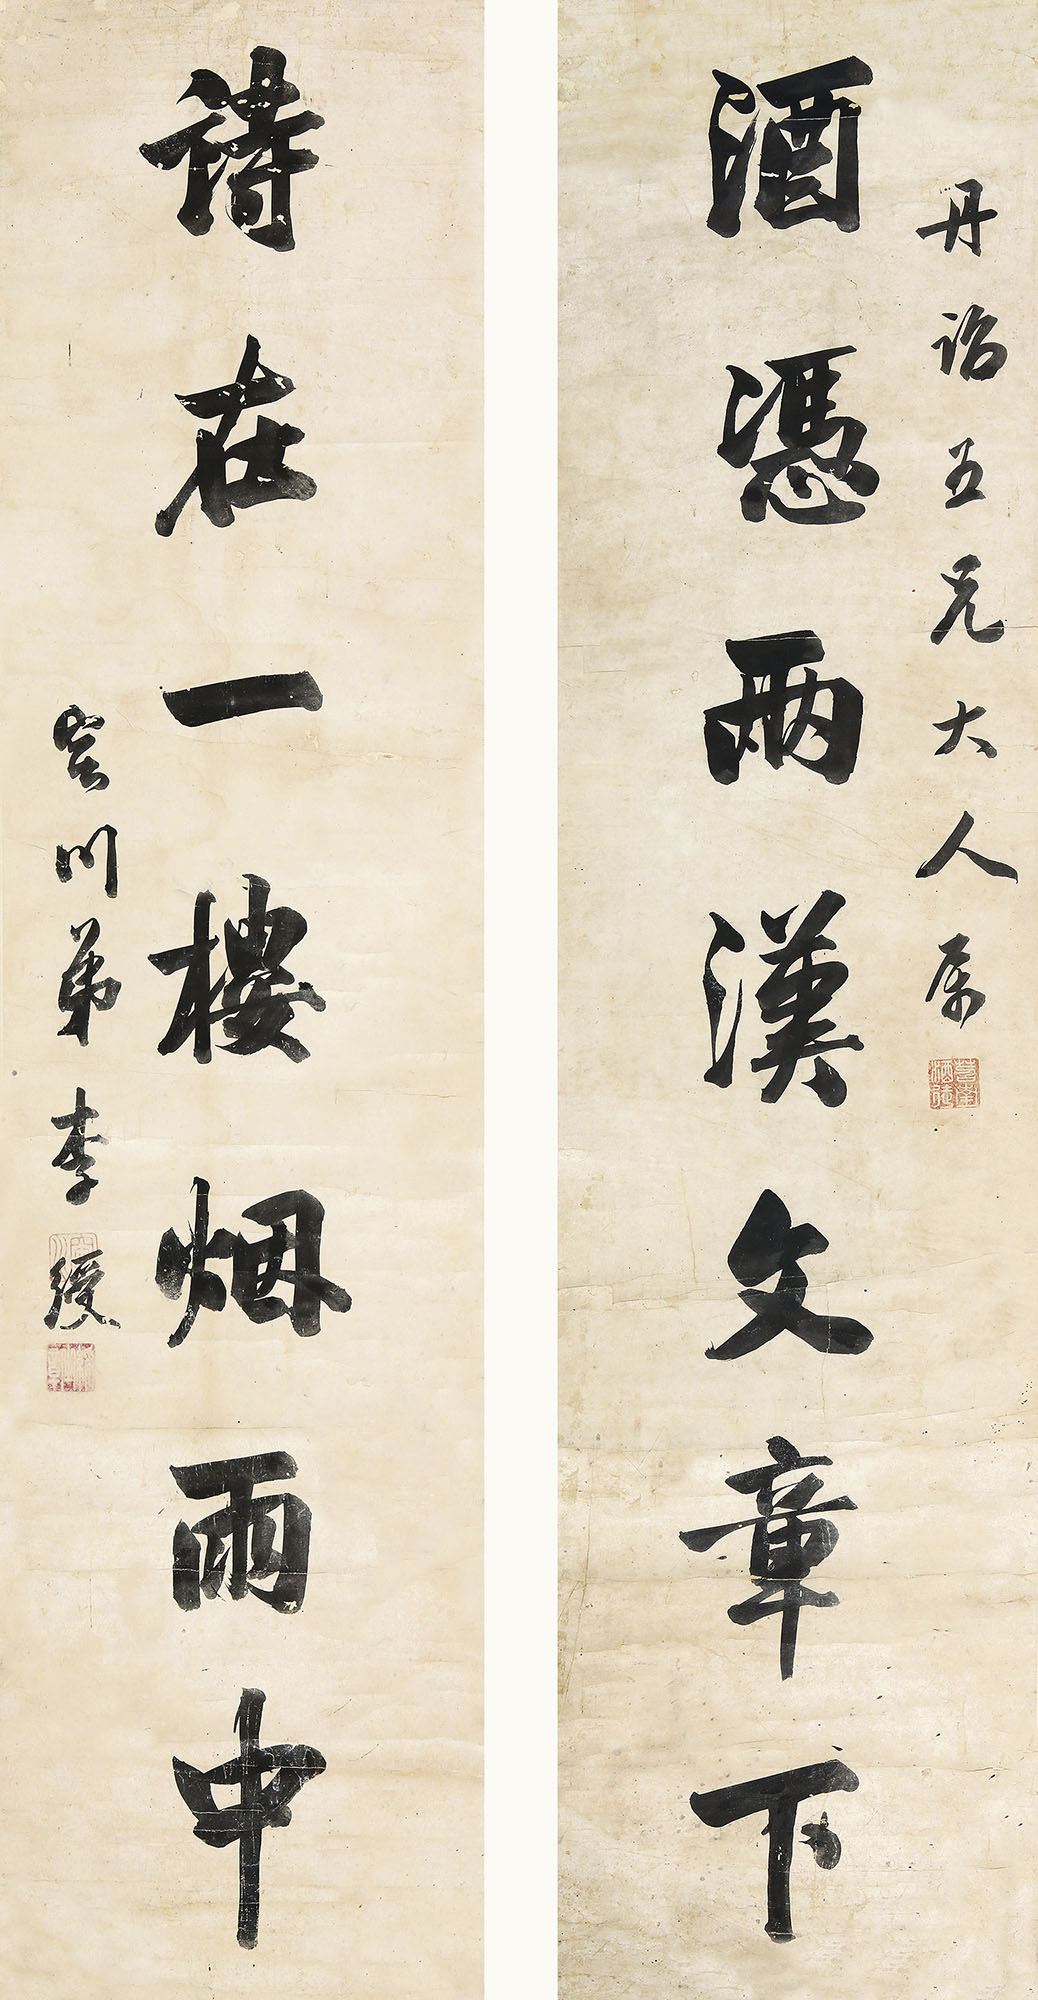 丹詔五兄大人属
酒憑兩漢文章下
詩在一樓烟雨中
川弟李綬